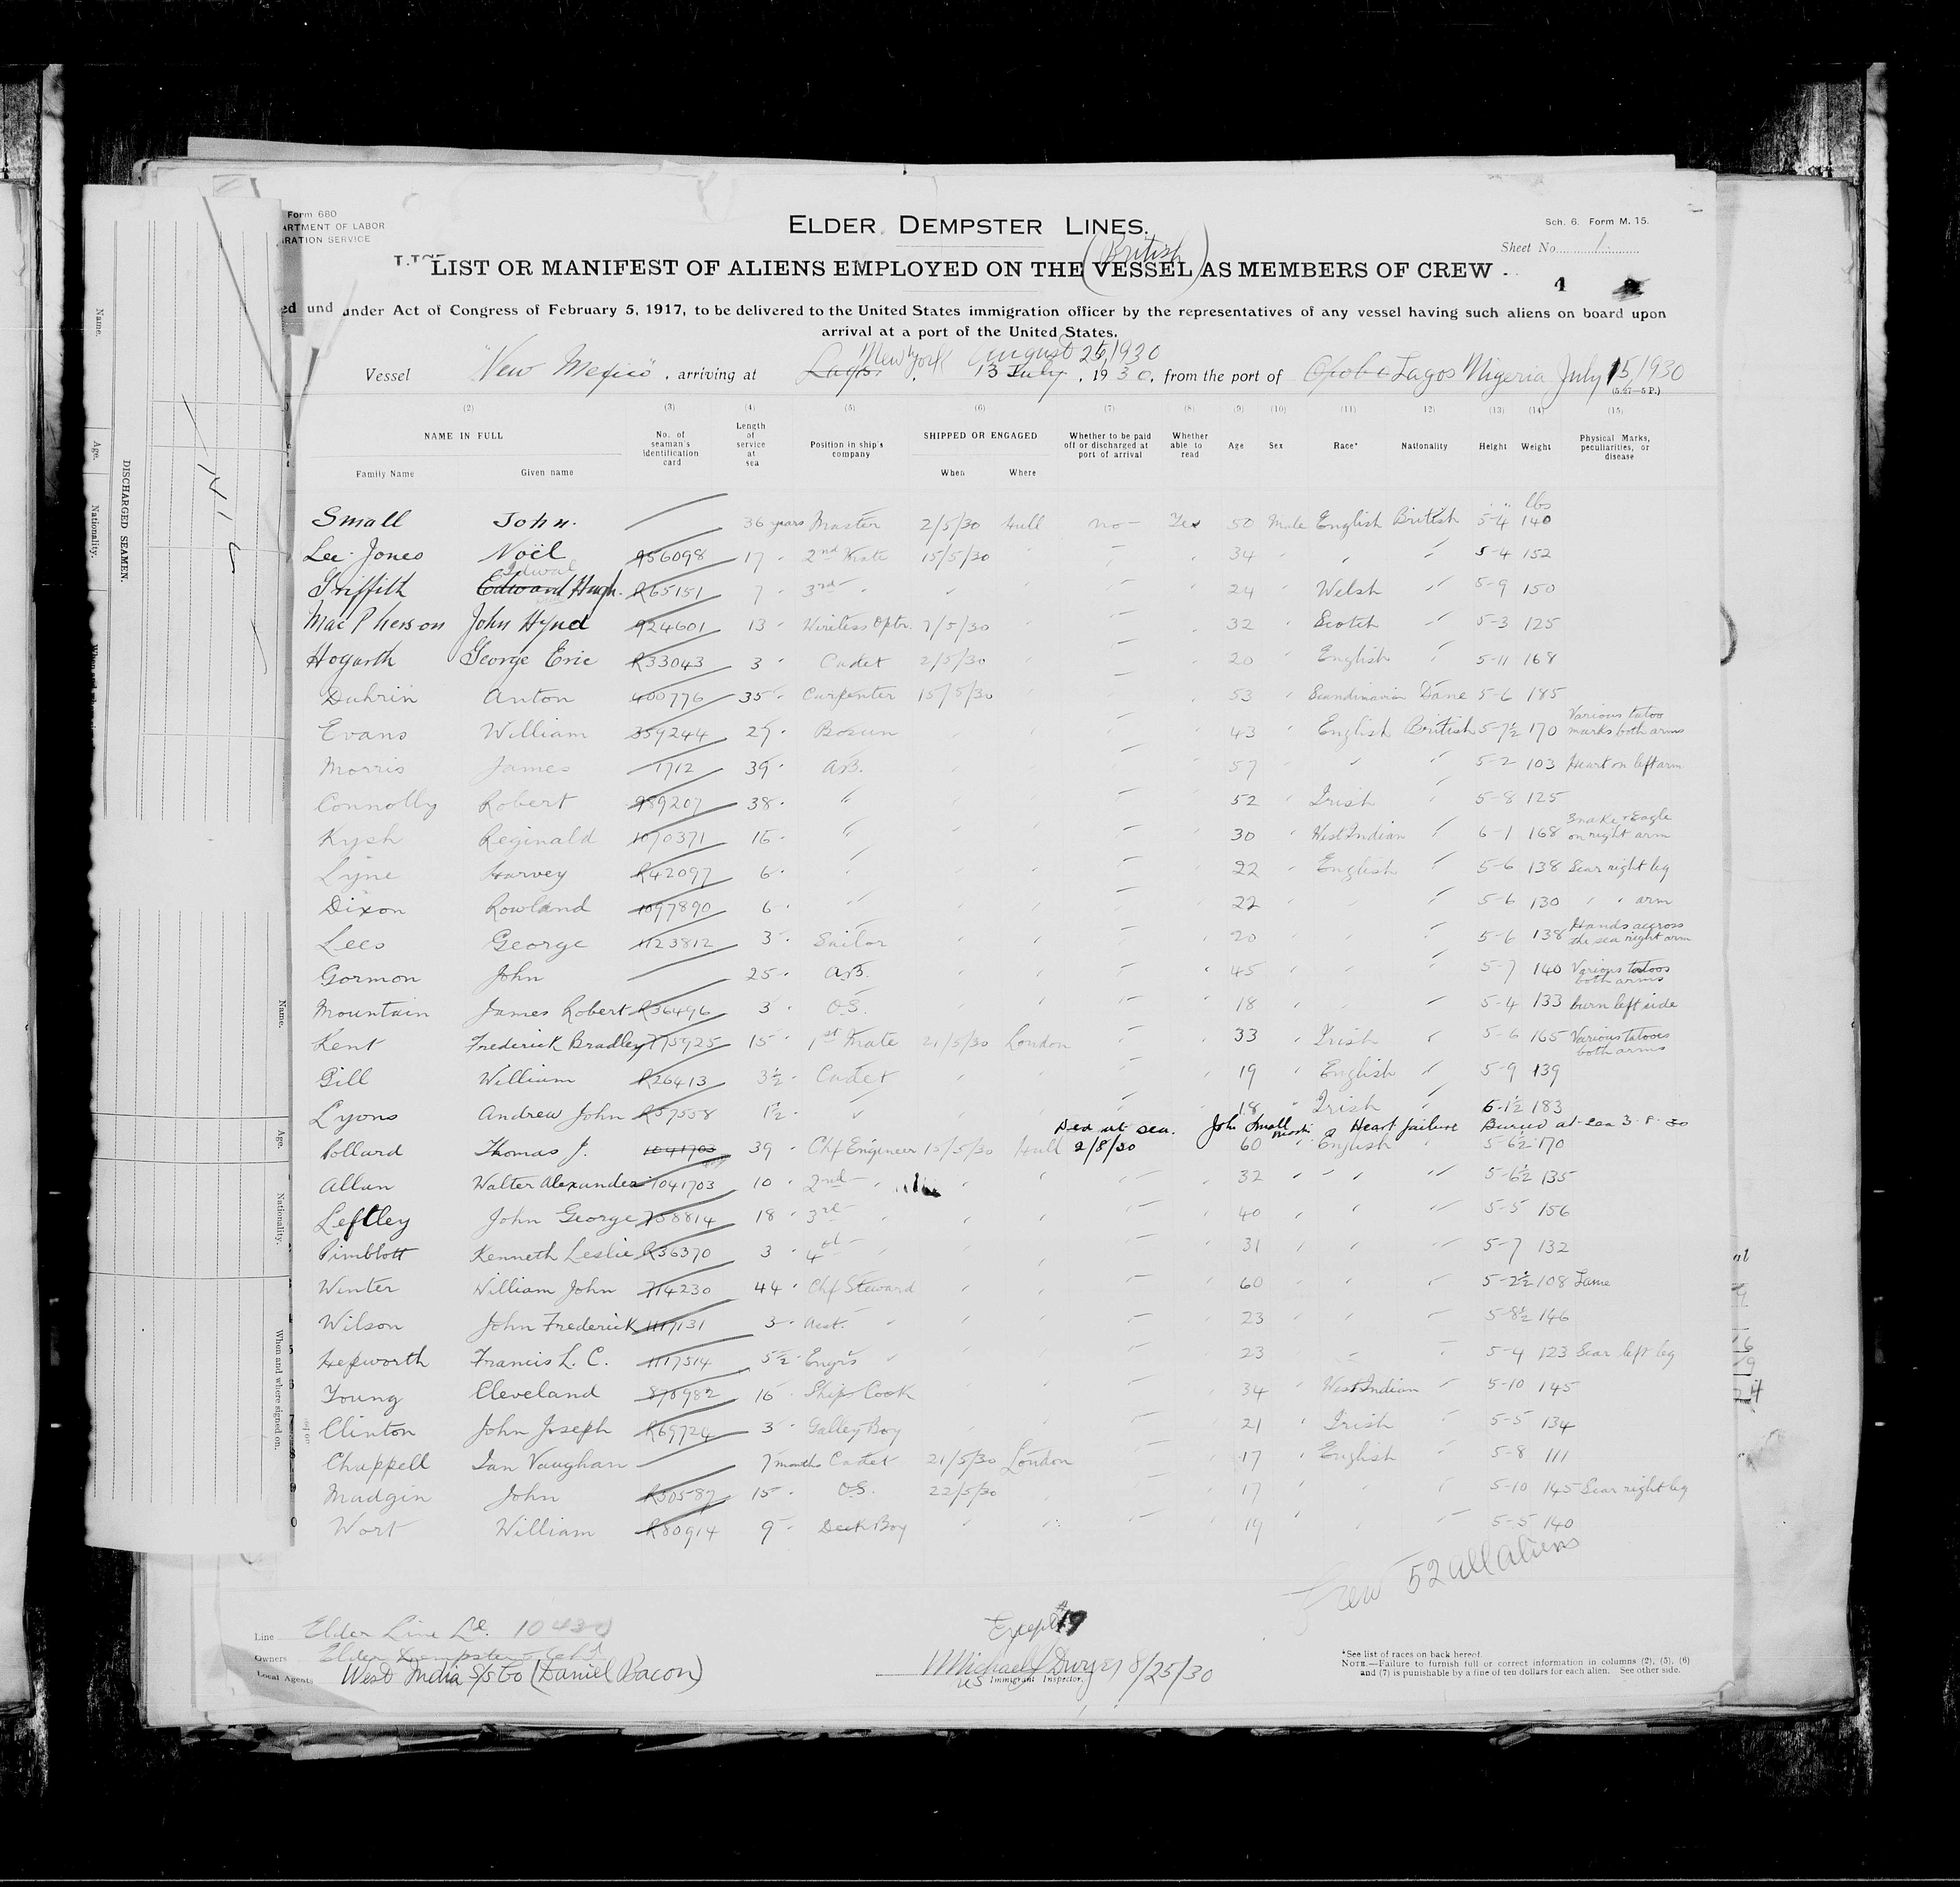 Form 680
ARTMENT OF LABOR
RATION SERVICE
ELDER DEMPSTER LINES.
Sch. 6. Form M. 15.
Sheet No. 1.
(British)
LIST OR MANIFEST OF ALIENS EMPLOYED ON THE VESSEL AS MEMBERS OF CREW
1
ed und under Act of Congress of February 5, 1917, to be delivered to the United States immigration officer by the representatives of any vessel having such aliens on board upon
arrival at a port of the United States.
New York August 25, 1930
Vessel "New Mexico", arriving at Lagos, 13 July, 1930, from the port of Opobo Lagos Nigeria July 15, 1930
(5.27—5 P.)
(2) (3) (4) (5) (6) (7) (8) (9) (10) (11) 12) (13) (14) (15)
NAME IN FULL
Family Name Given name
No. of seaman's identification card
Length of service at sea
Position in ship's company
SHIPPED OR ENGAGED
When Where
Whether to be paid off or discharged at port of arrival
Whether able to read
Age Sex Race* Nationality Height Weight
Physical Marks, peculiarities, or disease
lbs
Small John. 36 years Master 2/5/30 Hull no — Yes 50 Male English British 5-4 140
Lee-Jones Noël 956098 17 " 2nd Mate 15/5/30 34 5-4 152
Idwal
Griffith Edward Hugh. R65151 7 " 3rd " 24 Welsh 5-9 150
MacPherson John Hynd 924601 13 " Wireless Optr. 7/5/30 32 Scotch 5-3 125
Hogarth George Eric R33043 3 " Cadet 2/5/30 20 English 5-11 168
Duhrin Anton 400776 35 " Carpenter 15/5/30 53 Scandinavian Dane 5-6 185
Evans William 359244 27 " Bosun 43 English British 5-7½ 170 Various tatoo marks both arms
Morris James 1712 39 " A.B. 57 5-2 103 Heart on left arm
Connolly Robert 989207 38 " 52 Irish 5-8 125
Kysh Reginald 1070371 15 " 30 West Indian 6-1 168 Snake & Eagle on right arm
Lyne Harvey R42097 6 " 22 English 5-6 138 Scar right leg
Dixon Rowland 1097890 6 " 22 5-6 130 " " arm
Lees George 1123812 3 " Sailor 20 5-6 138 Hands across the sea right arm
Gormon John 25 " A.B. 45 5-7 140 Various tatoos both arms
Mountain James Robert R36496 3 " O.S. 18 5-4 133 burn left side
Kent Frederick Bradley 775925 15 " 1st Mate 21/5/30 London 33 Irish 5-6 165 Various tatoos both arms
Gill William R26413 3½ " Cadet 19 English 5-9 139
Lyons Andrew John R57558 1½ " 18 Irish 6-1½ 183
Died at sea. John Small Heart failure Buried at sea 3-8-30
Pollard Thomas J. 1041703 39 " Chf Engineer 15/5/30 Hull 2/8/30 60 English 5-6½ 170
Allan Walter Alexander 1041703 10 " 2nd " 32 5-6½ 135
Leftley John George 758814 18 " 3rd " 40 5-5 156
Pimblott Kenneth Leslie R36370 3 " 4th " 31 5-7 132
Winter William John 714230 44 " Chf Steward 60 5-2½ 108 Lame
Wilson John Frederick 1117131 3 " Asst. " 23 5-8½ 146
Hepworth Francis L. C. 1117514 5½ " Engrs " 23 5-4 123 Scar left leg
Young Cleveland 870982 16 " Ship Cook 34 West Indian 5-10 145
Clinton John Joseph R69724 3 " Galley Boy 21 Irish 5-5 134
Chappell Ian Vaughan 7 months Cadet 21/5/30 London 17 English 5-8 111
Mudgin John R50587 15 " O.S. 22/5/30 17 5-10 145 Scar right leg
Wort William R80914 9 " Deck Boy 19 5-5 140
Crew 52 all aliens
Line Elder Line Ld.
Owners Elder Dempster & Co Ld
Local Agents West India S/S Co (Daniel Bacon)
Except #19
Michael J Dwyer 8/25/30
US Immigrant Inspector.
*See list of races on back hereof.
NOTE.—Failure to furnish full or correct information in columns (2), (5), (6)
and (7) is punishable by a fine of ten dollars for each alien. See other side.
DISCHARGED SEAMEN.
Name.
Age.
Nationality.
NIL
Name.
Age.
Nationality.
When and where signed on.